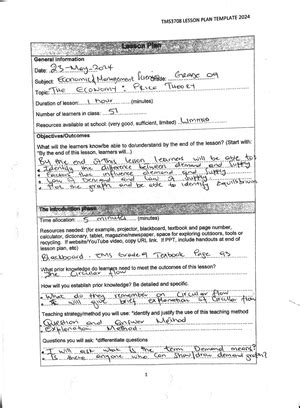 TMS3708 LESSON PLAN TEMPLATE 2024
Lesson Plan
General information
Date: 23-May-2024
Subject: Economic Management Sciences Grade 09
Topic: The Economy: Price Theory
Duration of lesson: 1 hour (minutes)
Number of learners in class: 51
Resources available at school: (very good, sufficient, limited) Limited
Objectives/Outcomes
What will the learners know/be able to do/understand by the end of the lesson? (Start with:
"By the end of the lesson, learners will...)
By the end of this lesson learners will be able to:
• Identify the difference between demand and supply
• Factors that influence demand and supply
• Law of Demand and Law of Supply
• Plot the graph and be able to identify Equilibrium
The introduction phase
Time allocation: 5 minutes (minutes)
Resources needed: (for example, projector, blackboard, textbook and page number,
calculator, dictionary, tablet, magazine/newspaper, space for exploring outdoors, tools or
recycling. If website/YouTube video, copy URL link. If PPT, include handouts at end of
lesson plan, etc)
Blackboard - EMS Grade 9 Textbook Page 93
What prior knowledge do learners need to meet the outcomes of this lesson?
The Circular flow
How will you establish prior knowledge? Be detailed and specific.
• What do they remember on Circular flow
• I will give brief explanation of Circular flow
Teaching strategy/method you will use: *identify and justify the use of this teaching method
Question and Answer Method
Explanation Method
Questions you will ask: *differentiate questions
• I will ask what is the term Demand means?
• Is there anyone who can show/draw demand graph?
1